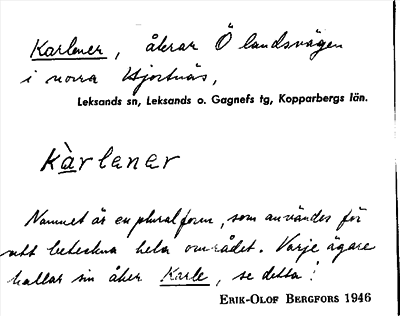 Karlener, åkrar Ö landsvägen
i norra Hjortnäs,
Leksands sn, Leksands o. Gagnefs tg, Kopparbergs län.
Kàrlener
Namnet är en pluralform, som användes för
att beteckna hela området. Varje ägare
kallar sin åker Karle, se detta!
ERIK-OLOF BERGFORS 1946